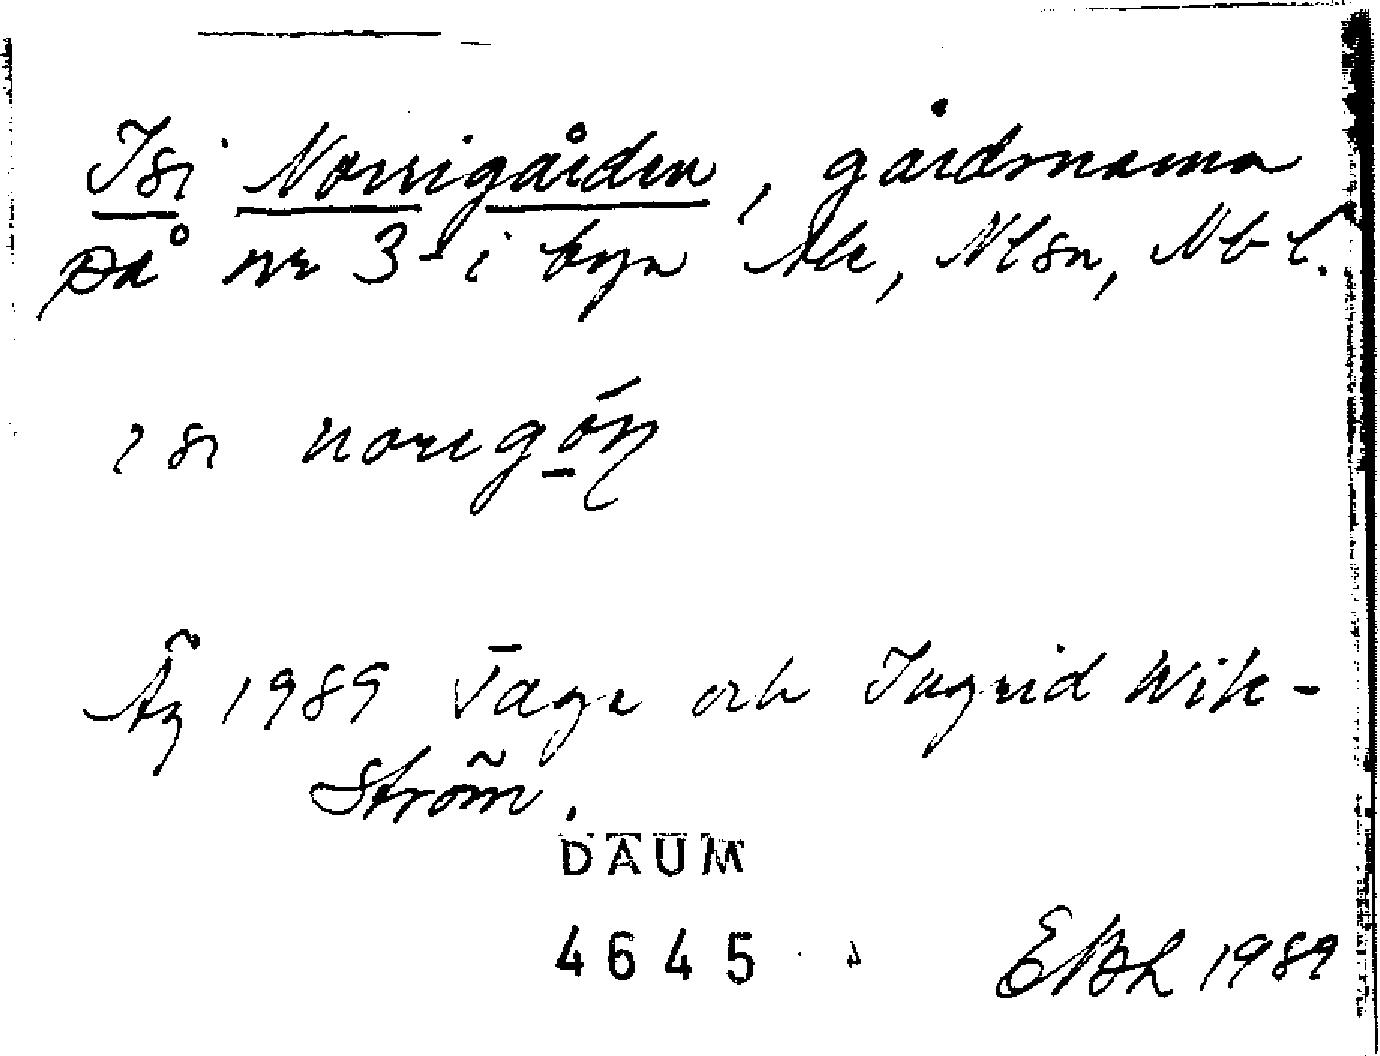 Isi Norrigården, gårdsnamn
på nr 3 i byn Ale, Nlsn, Nbl.
ısı norıgó̱ṇ
Äg 1989 Tage och Ingrid Wik-
ström.
DAUM
4645
EBL 1989